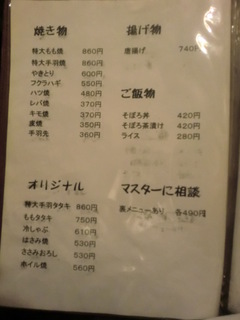 焼き物
特大もも焼 860円
特大手羽焼 860円
やきとり 600円
フクラハギ 550円
ハツ焼 480円
レバ焼 370円
キモ焼 370円
皮焼 350円
手羽先 360円
揚げ物
唐揚げ 740
ご飯物
そぼろ丼 420円
そぼろ茶漬け 420円
ライス 280円
オリジナル
特大手羽タタキ 860円
ももタタキ 750円
冷しゃぶ 610円
はさみ焼 530円
ささみおろし 530円
ホイル焼 560円
マスターに相談
裏メニューあり 各490円